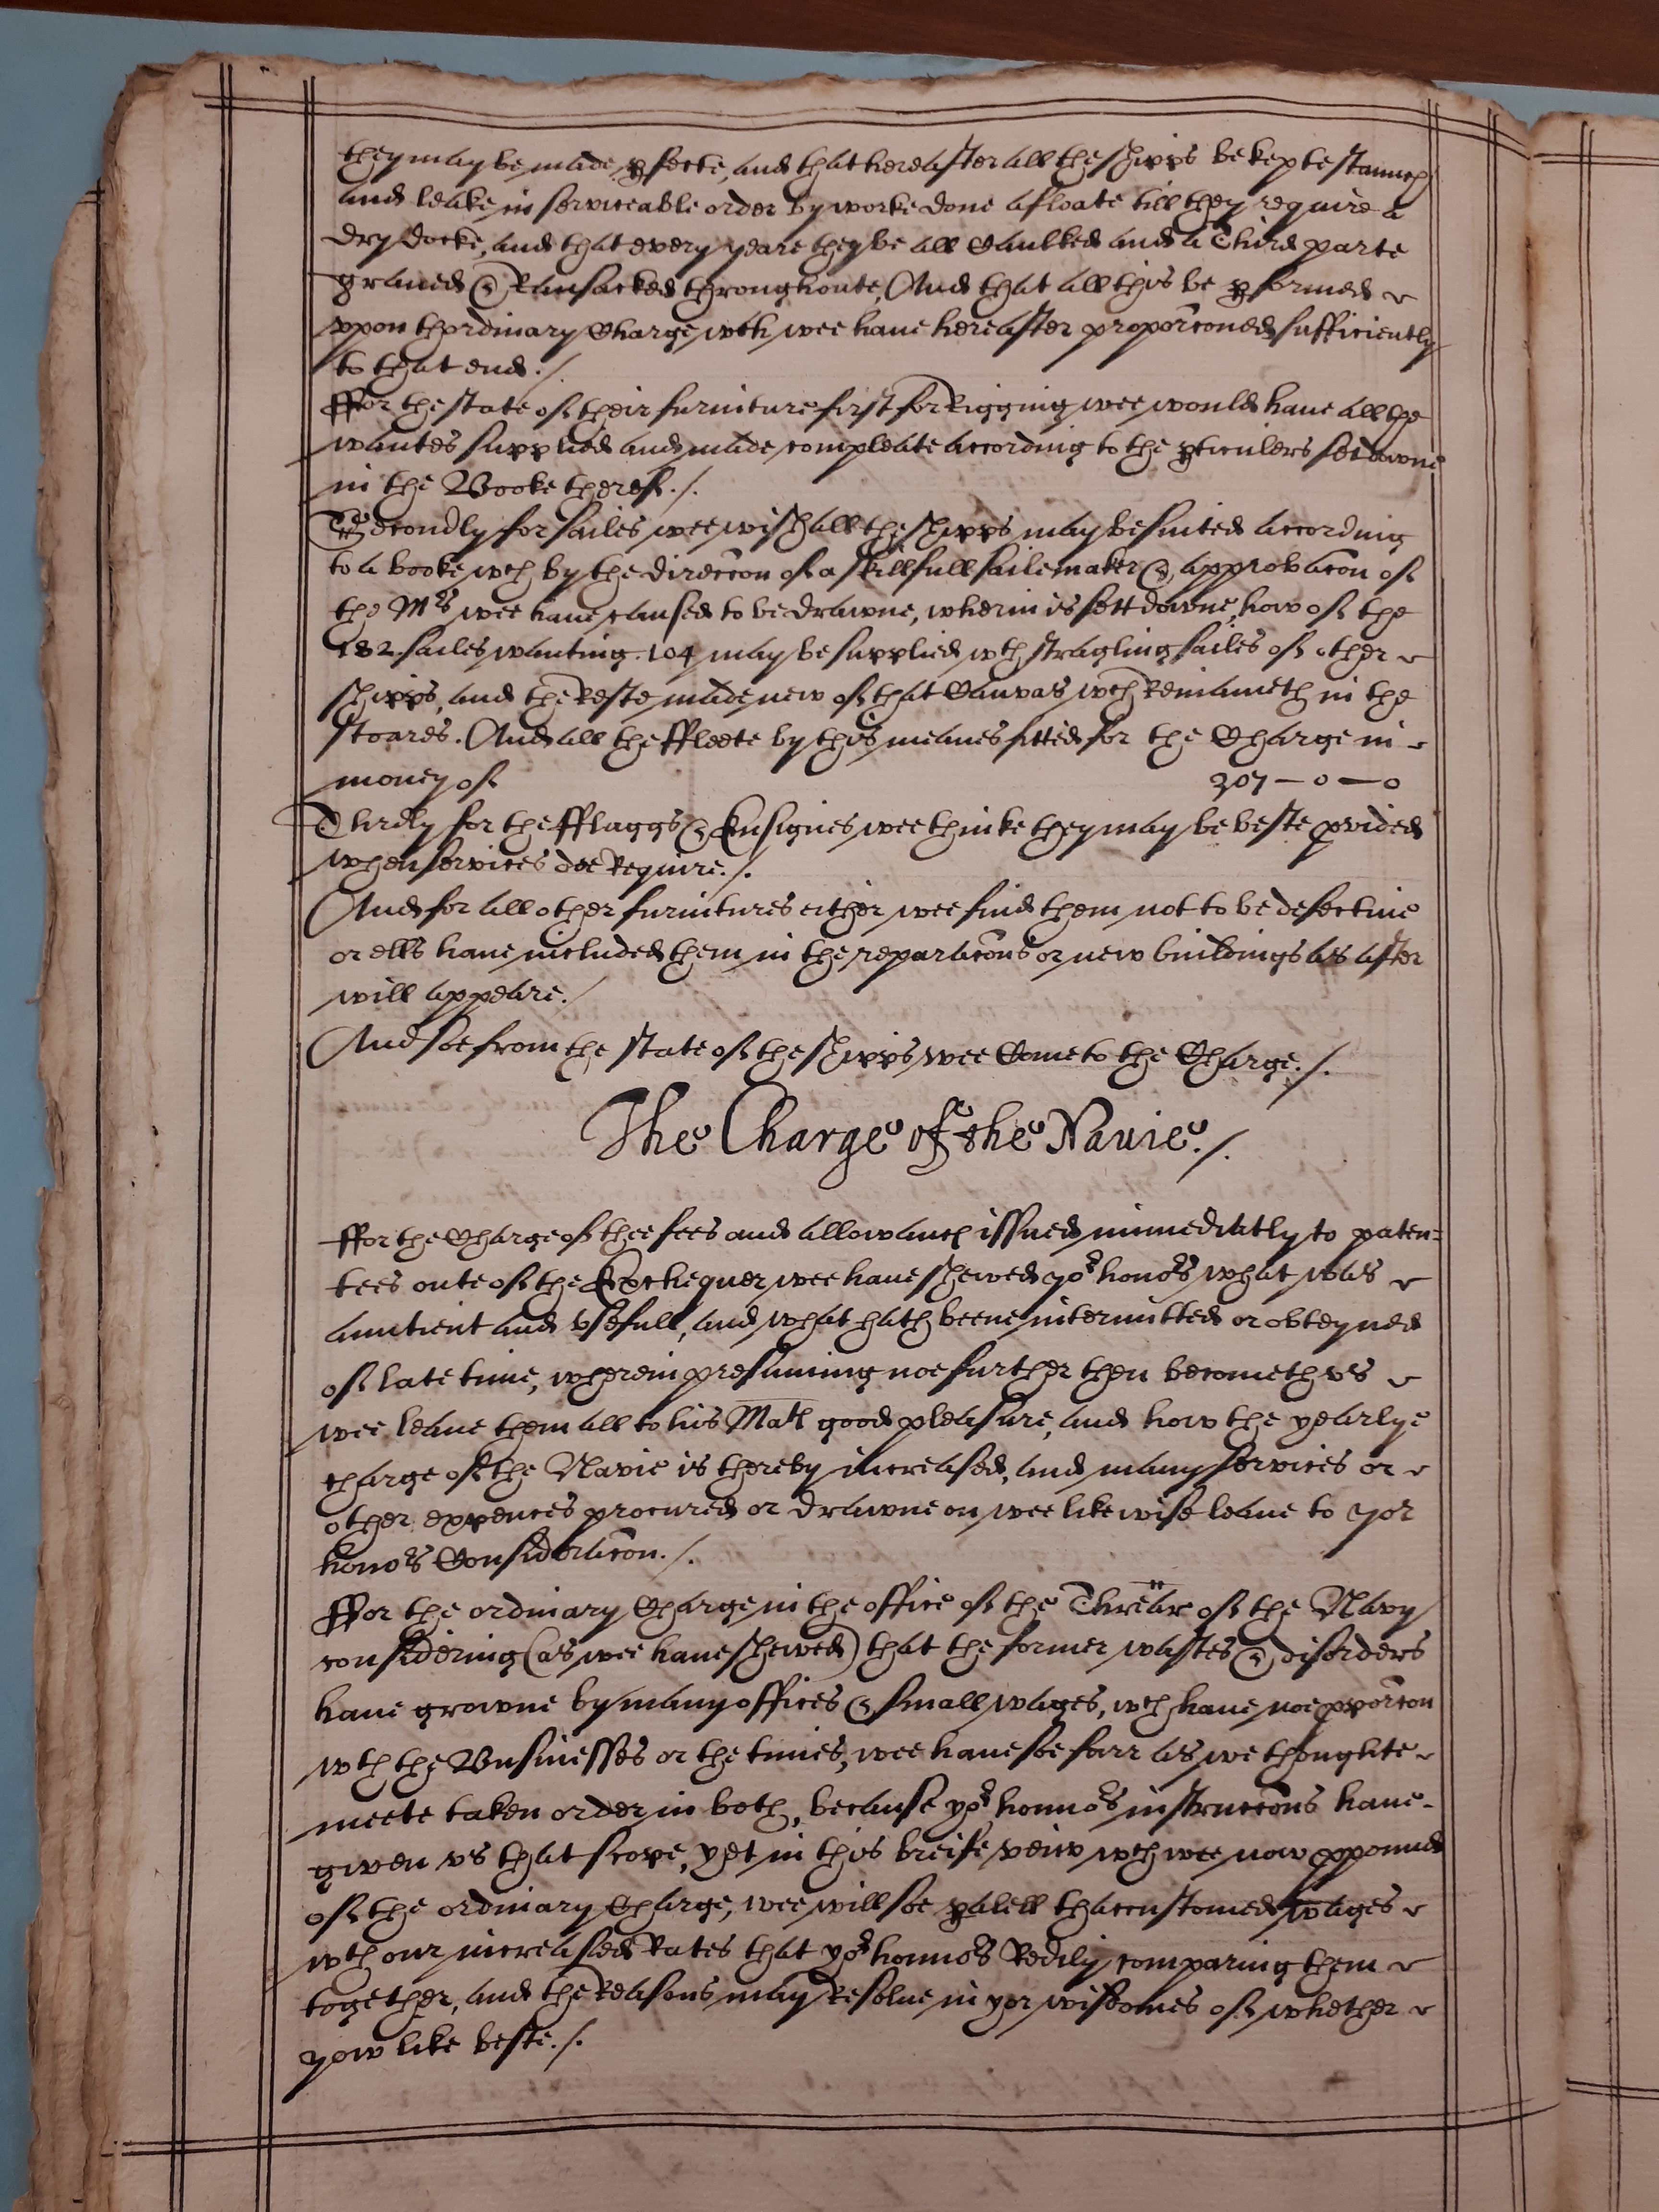 they may be made pfecte, and that hereafter all the shipps be kepte staunch
and leake in serviceable order by worke done afloate till they require a
dry docke, and that every yeare they be all Caulked and a Third parte
graued & Ransacked throughoute, And that all this be pformed
vpon thordinary Charge wch wee haue hereafter proporcõned sufficiently
to that end ./.
ffor the state of their furniture first for Rigging wee would haue all the
wantes supplied and made compleate according to the pticulers set downe
in the Booke thereof ./.
Secondly for sailes wee wish all the shipps may be suited according
to a booke wch by the direccõn of a skillfull sailemaker & approbacõn of
the Mrs wee haue caused to be drawne, wherin is sett downe, how of the
182. sailes wanting. 104 may be supplied wth stragling sailes of other
shipps, and the Reste made new of that Canvas wch Remaineth in the
stoares. And all the ffleete by this meanes fitted for the Charge in
money of 307 - 0 - 0
Thirdly for the fflaggs & Ensignes wee thinke they may be beste pvided
when services doe Require ./.
And for all other furnitures either wee find them not to be defectiue
or ells haue included them in the reparacõns or new buildings as after
will appeare ./
And soe from the state of the shipps wee Come to the Charge ./.
The Charge of the Nauie ./.
ffor the Charge of thee fees and allowanc issued immediatly to paten=
tees oute of the Exchequer wee haue shewed yor honors what was
auntient and vsefull, and what hath beene intermitted or obteyned
of late time, wherein presuming noe further then becometh vs
wee leaue them all to his Mats good pleasure, and how the yearlye
charge of the Navie is thereby increased, and many services or
other expences procured or drawne on wee likewise leaue to yor
honors Consideracõn ./.
ffor the ordinary Charge in the office of the Threãr of the Navy
considering (as wee haue shewed) that the former wastes & disorders
haue growne by many offices & small wages, wch haue noe pporcõn
wth the Businesses or the times, wee haue soe farr as we thoughte
meete taken order in both, because yor honnors instruccõns haue
given vs that scope, yet in this breife veiw wch wee now ppound
of the ordinary Charge, wee will soe palell thaccustomed wages
wth our increased Rates that yor honnors Redily comparing them
together, and the Reasons may Resolue in yor wisdomes of whether
yow like beste ./.